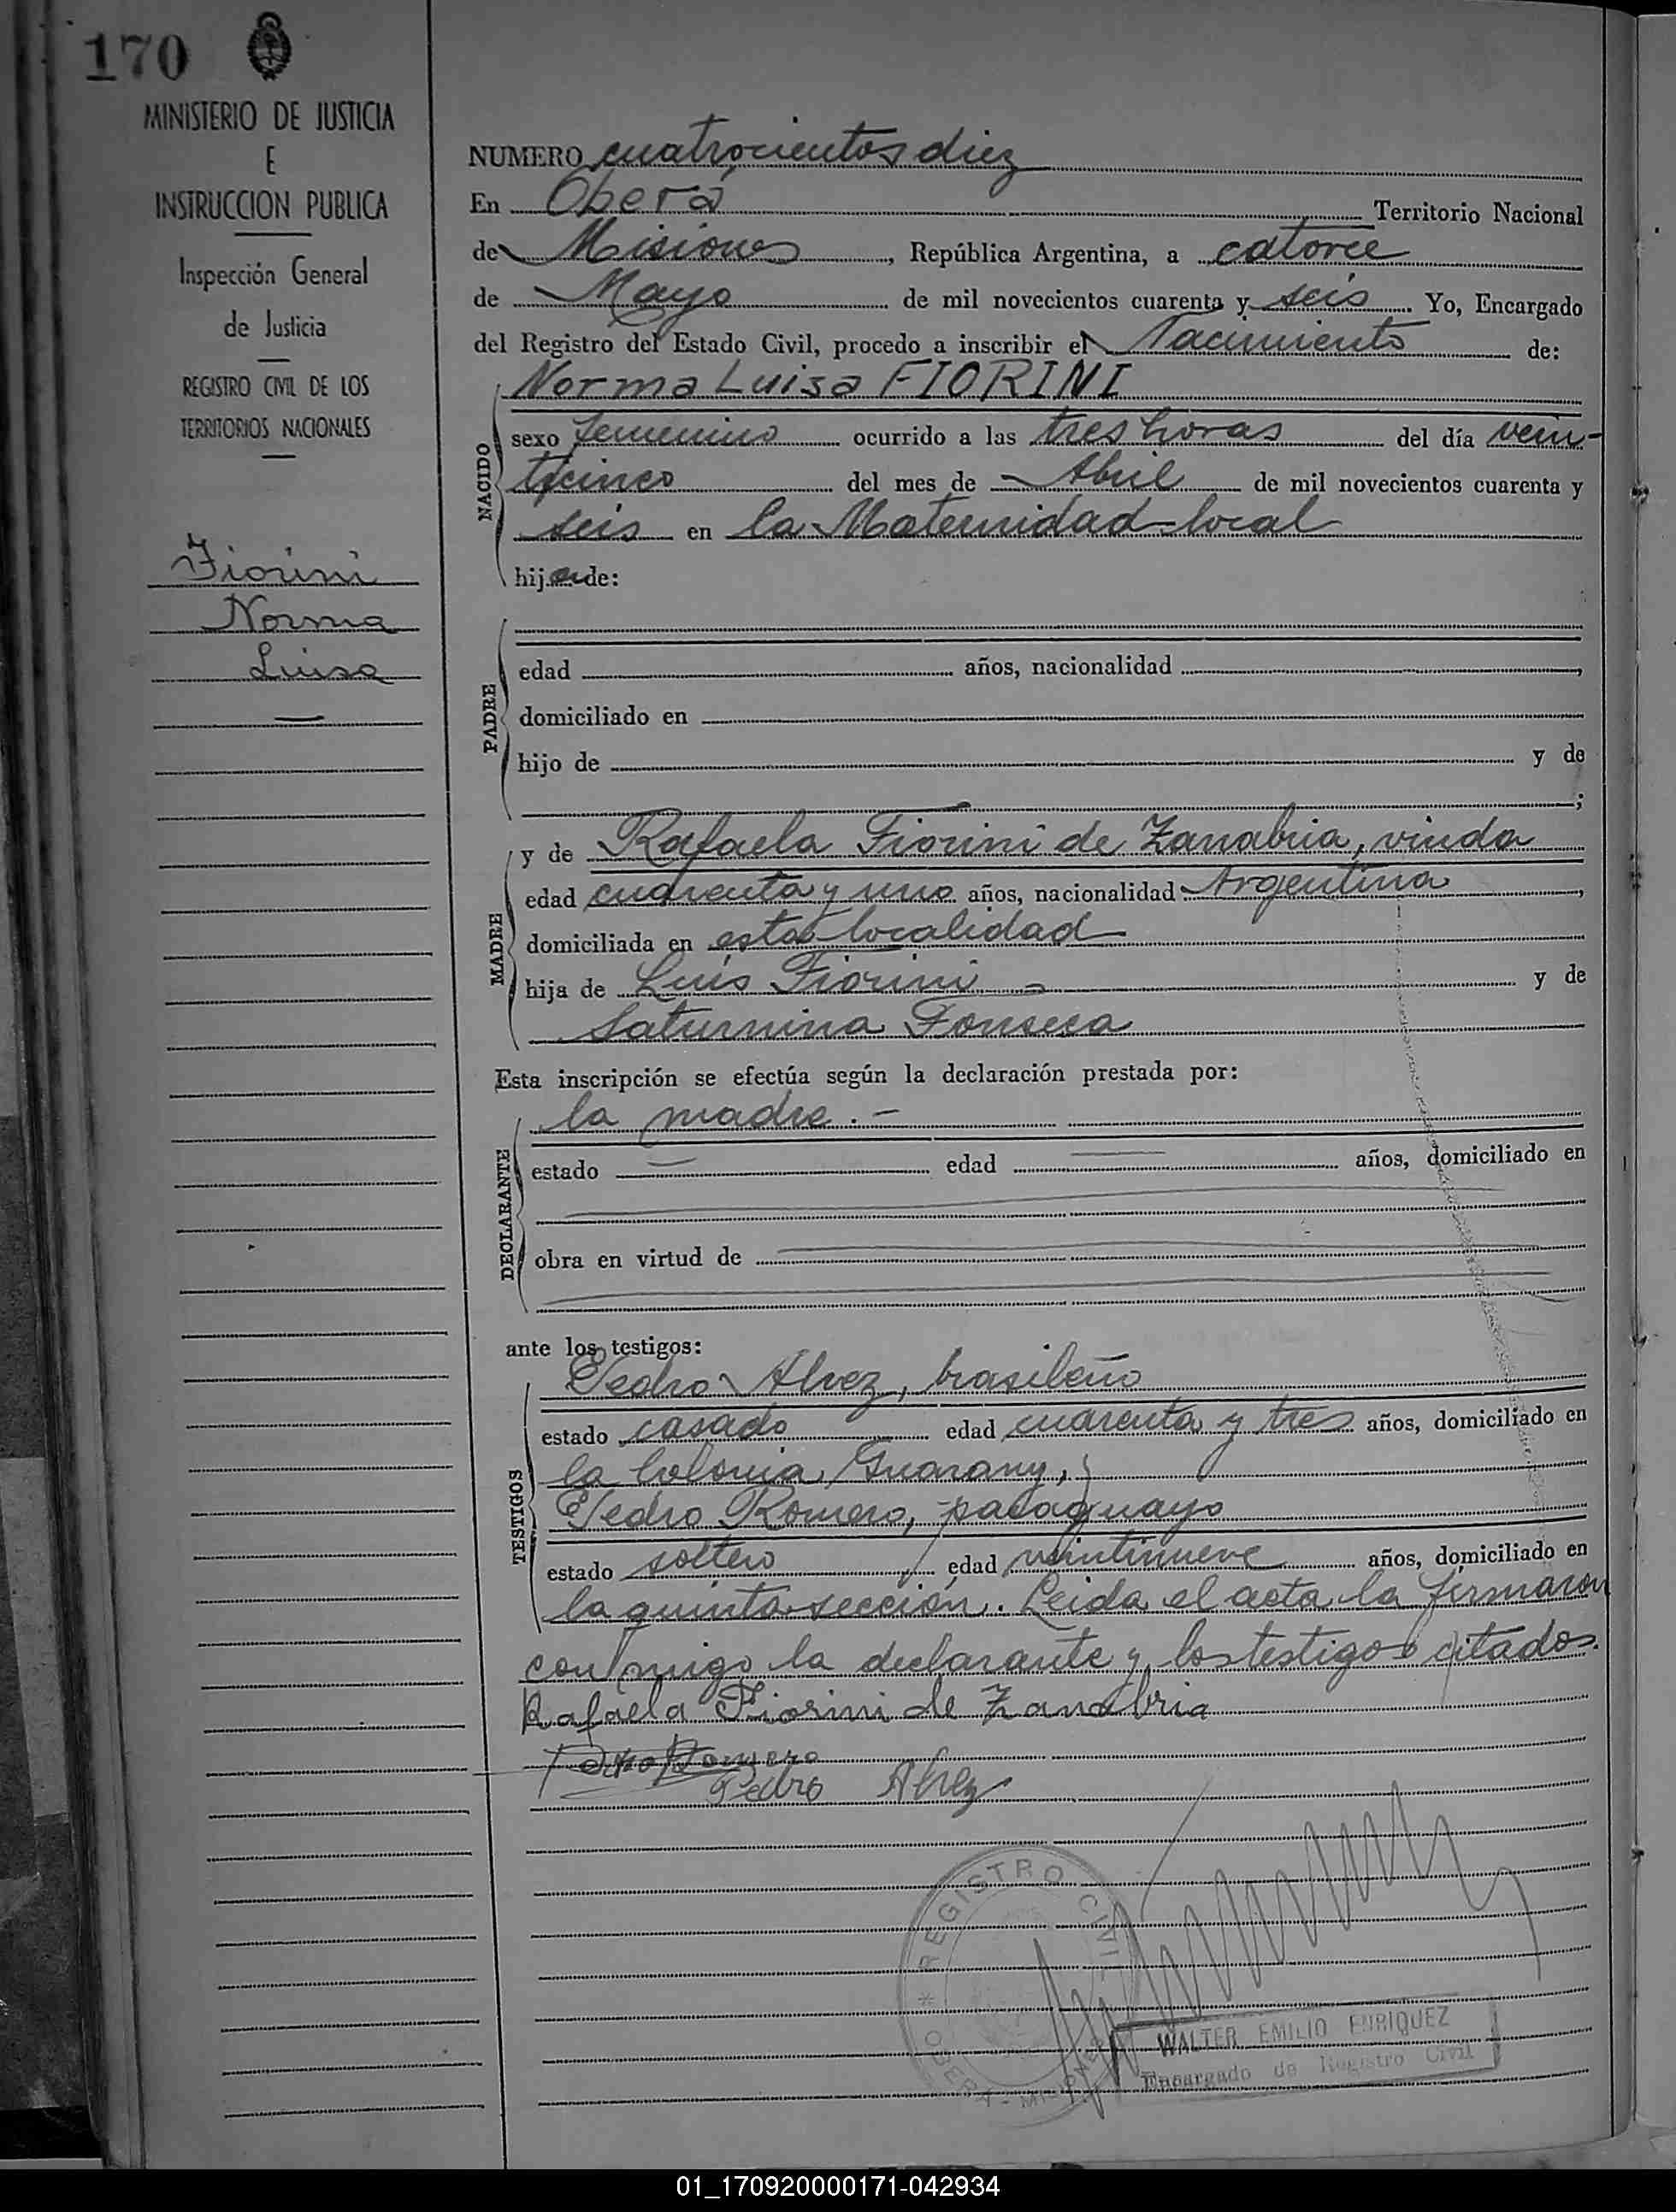 170
MINISTERIO DE JUSTICIA
E
INSTRUCCION PUBLICA
Inspección General
de Justicia
REGISTRO CIVIL DE LOS
TERRITORIOS NACIONALES
Fiorini
Norma
Luisa
NUMERO cuatrocientos diez
En Oberá Territorio Nacional
de Misiones, República Argentina, a catorce
de Mayo de mil novecientos cuarenta y seis. Yo, Encargado
del Registro del Estado Civil, procedo a inscribir el Nacimiento de:
NACIDO
Norma Luisa FIORINI
sexo femenino ocurrido a las tres horas del día vein-
ticinco del mes de Abril de mil novecientos cuarenta y
seis en la Maternidad local
hija de:
PADRE
edad años, nacionalidad ,
domiciliado en
hijo de y de
;
MADRE
y de Rafaela Fiorini de Zanabria, viuda
edad cuarenta y uno años, nacionalidad Argentina,
domiciliada en esta localidad
hija de Luis Fiorini y de
Saturnina Fonseca
Esta inscripción se efectúa según la declaración prestada por:
DECLARANTE
la madre.-
estado — edad — años, domiciliado en
obra en virtud de
ante los testigos:
TESTIGOS
Pedro Alvez, brasileño
estado casado edad cuarenta y tres años, domiciliado en
la Colonia Guarany, y
Pedro Romero, paraguayo
estado soltero, edad veintinueve años, domiciliado en
la quinta sección. Leida el acta la firmaron
conmigo la declarante y los testigos citados.
Rafaela Fiorini de Zanabria
Pedro Romero
Pedro Alvez
REGISTRO CIVIL
* OBERA - MISIONES
WALTER EMILIO ENRIQUEZ
Encargado de Registro Civil
01_170920000171-042934